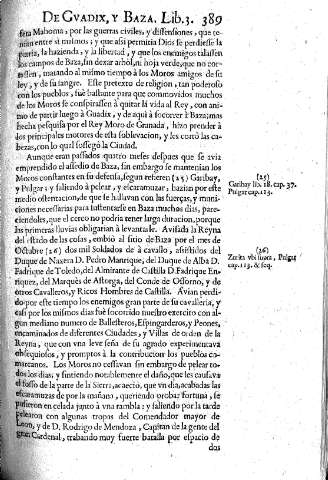 DE GVADIX, Y BAZA. Lib.3. 389
seta Mahoma, por las guerras civiles, y dissensiones, que te-
nian entre si mismos; y que assi permitia Dios se perdiesse la
patria, la hazienda, y la libertad, y que los enemigos talassen
los campos de Baza, sin dexar arbol, ni hoja verde, que no cor-
tassen, matando al mismo tiempo à los Moros amigos de su
ley, y de su sangre. Este pretexto de religion, tan poderoso
con los pueblos, fuè bastante para que conmovidos muchos
de los Moros se conspirassen à quitar la vida al Rey, con ani-
mo de partir luego à Guadix, y de aqui à socorrer à Baza; mas
hecha pesquisa por el Rey Moro de Granada, hizo prender à
los principales motores de esta sublevacion, y les cortò las ca-
bezas, con lo qual sossegò la Ciudad.
Aunque eran passados quatro meses despues que se avia
emprendido el assedio de Baza, sin embargo se mantenian los
Moros constantes en su defensa, segun refieren (25) Garibay,
y Pulgar; y saliendo à pelear, y escaramuzar, hazian por este
medio ostentacion, de que se hallavan con las fuerças, y muni-
ciones necessarias para sustentarse en Baza muchos dias, pare-
ciendoles, que el cerco no podria tener larga duracion, porque
las primeras lluvias obligarian à levantarle. Avisada la Reyna
del estado de las cosas, embiò al sitio de Baza por el mes de
Octubre (26) dos mil Soldados de à cavallo, assistidos del
Duque de Naxera D. Pedro Manrique, del Duque de Alba D.
Fadrique de Toledo, del Almirante de Castilla D. Fadrique En-
riquez, del Marquès de Astorga, del Conde de Osorno, y de
otros Cavalleros, y Ricos Hombres de Castilla. Avian perdi-
do por este tiempo los enemigos gran parte de su cavalleria, y
casi por los mismos dias fuè socorrido nuestro exercito con al-
gun mediano numero de Ballesteros, Espingarderos, y Peones,
encaminados de diferentes Ciudades, y Villas de orden de la
Reyna, que con vna leve seña de su agrado experimentava
obsequiosos, y promptos à la contributcion los pueblos co-
marcanos. Los Moros no cessavan sin embargo de pelear to-
dos los dias, y sintiendo notablemente el daño, que les causava
el fosso de la parte de la Sierra, acaeciò, que vn dia, acabadas las
escaramuzas de por la mañana, queriendo probar fortuna, se
pusieron en celada junto à vna rambla; y saliendo por la tarde
pelearon con algunas tropas del Comendador mayor de
Leon, y de D. Rodrigo de Mendoza, Capitan de la gente del
gran Cardenal, trabando muy fuerte batalla por espacio de
dos
(25)
Garibay lib. 18. cap. 37.
Pulgar cap. 113.
(26)
Zurita vbi supra, Pulgar
cap. 113. & seq.